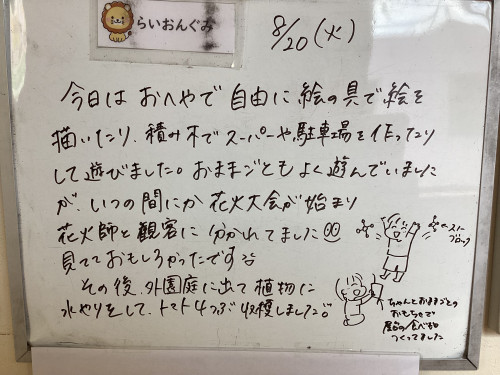 らいおんぐみ
8/20(火)
今日は おへやで 自由に 絵の具で 絵を
描いたり、積み木で スーパーや 駐車場を 作ったり
して遊びました。おままごとも よく 遊んでいました
が、いつの間にか 花火大会が 始まり
花火師と 観客に 分かれてました
見てておもしろかったです
その後、外園庭に出て 植物に
水やりをして、トマト4つぶ 収穫しました。
←スノー
ブロック
ちゃんとおままごとの
おもちゃで
屋台の食べもの
つくってました